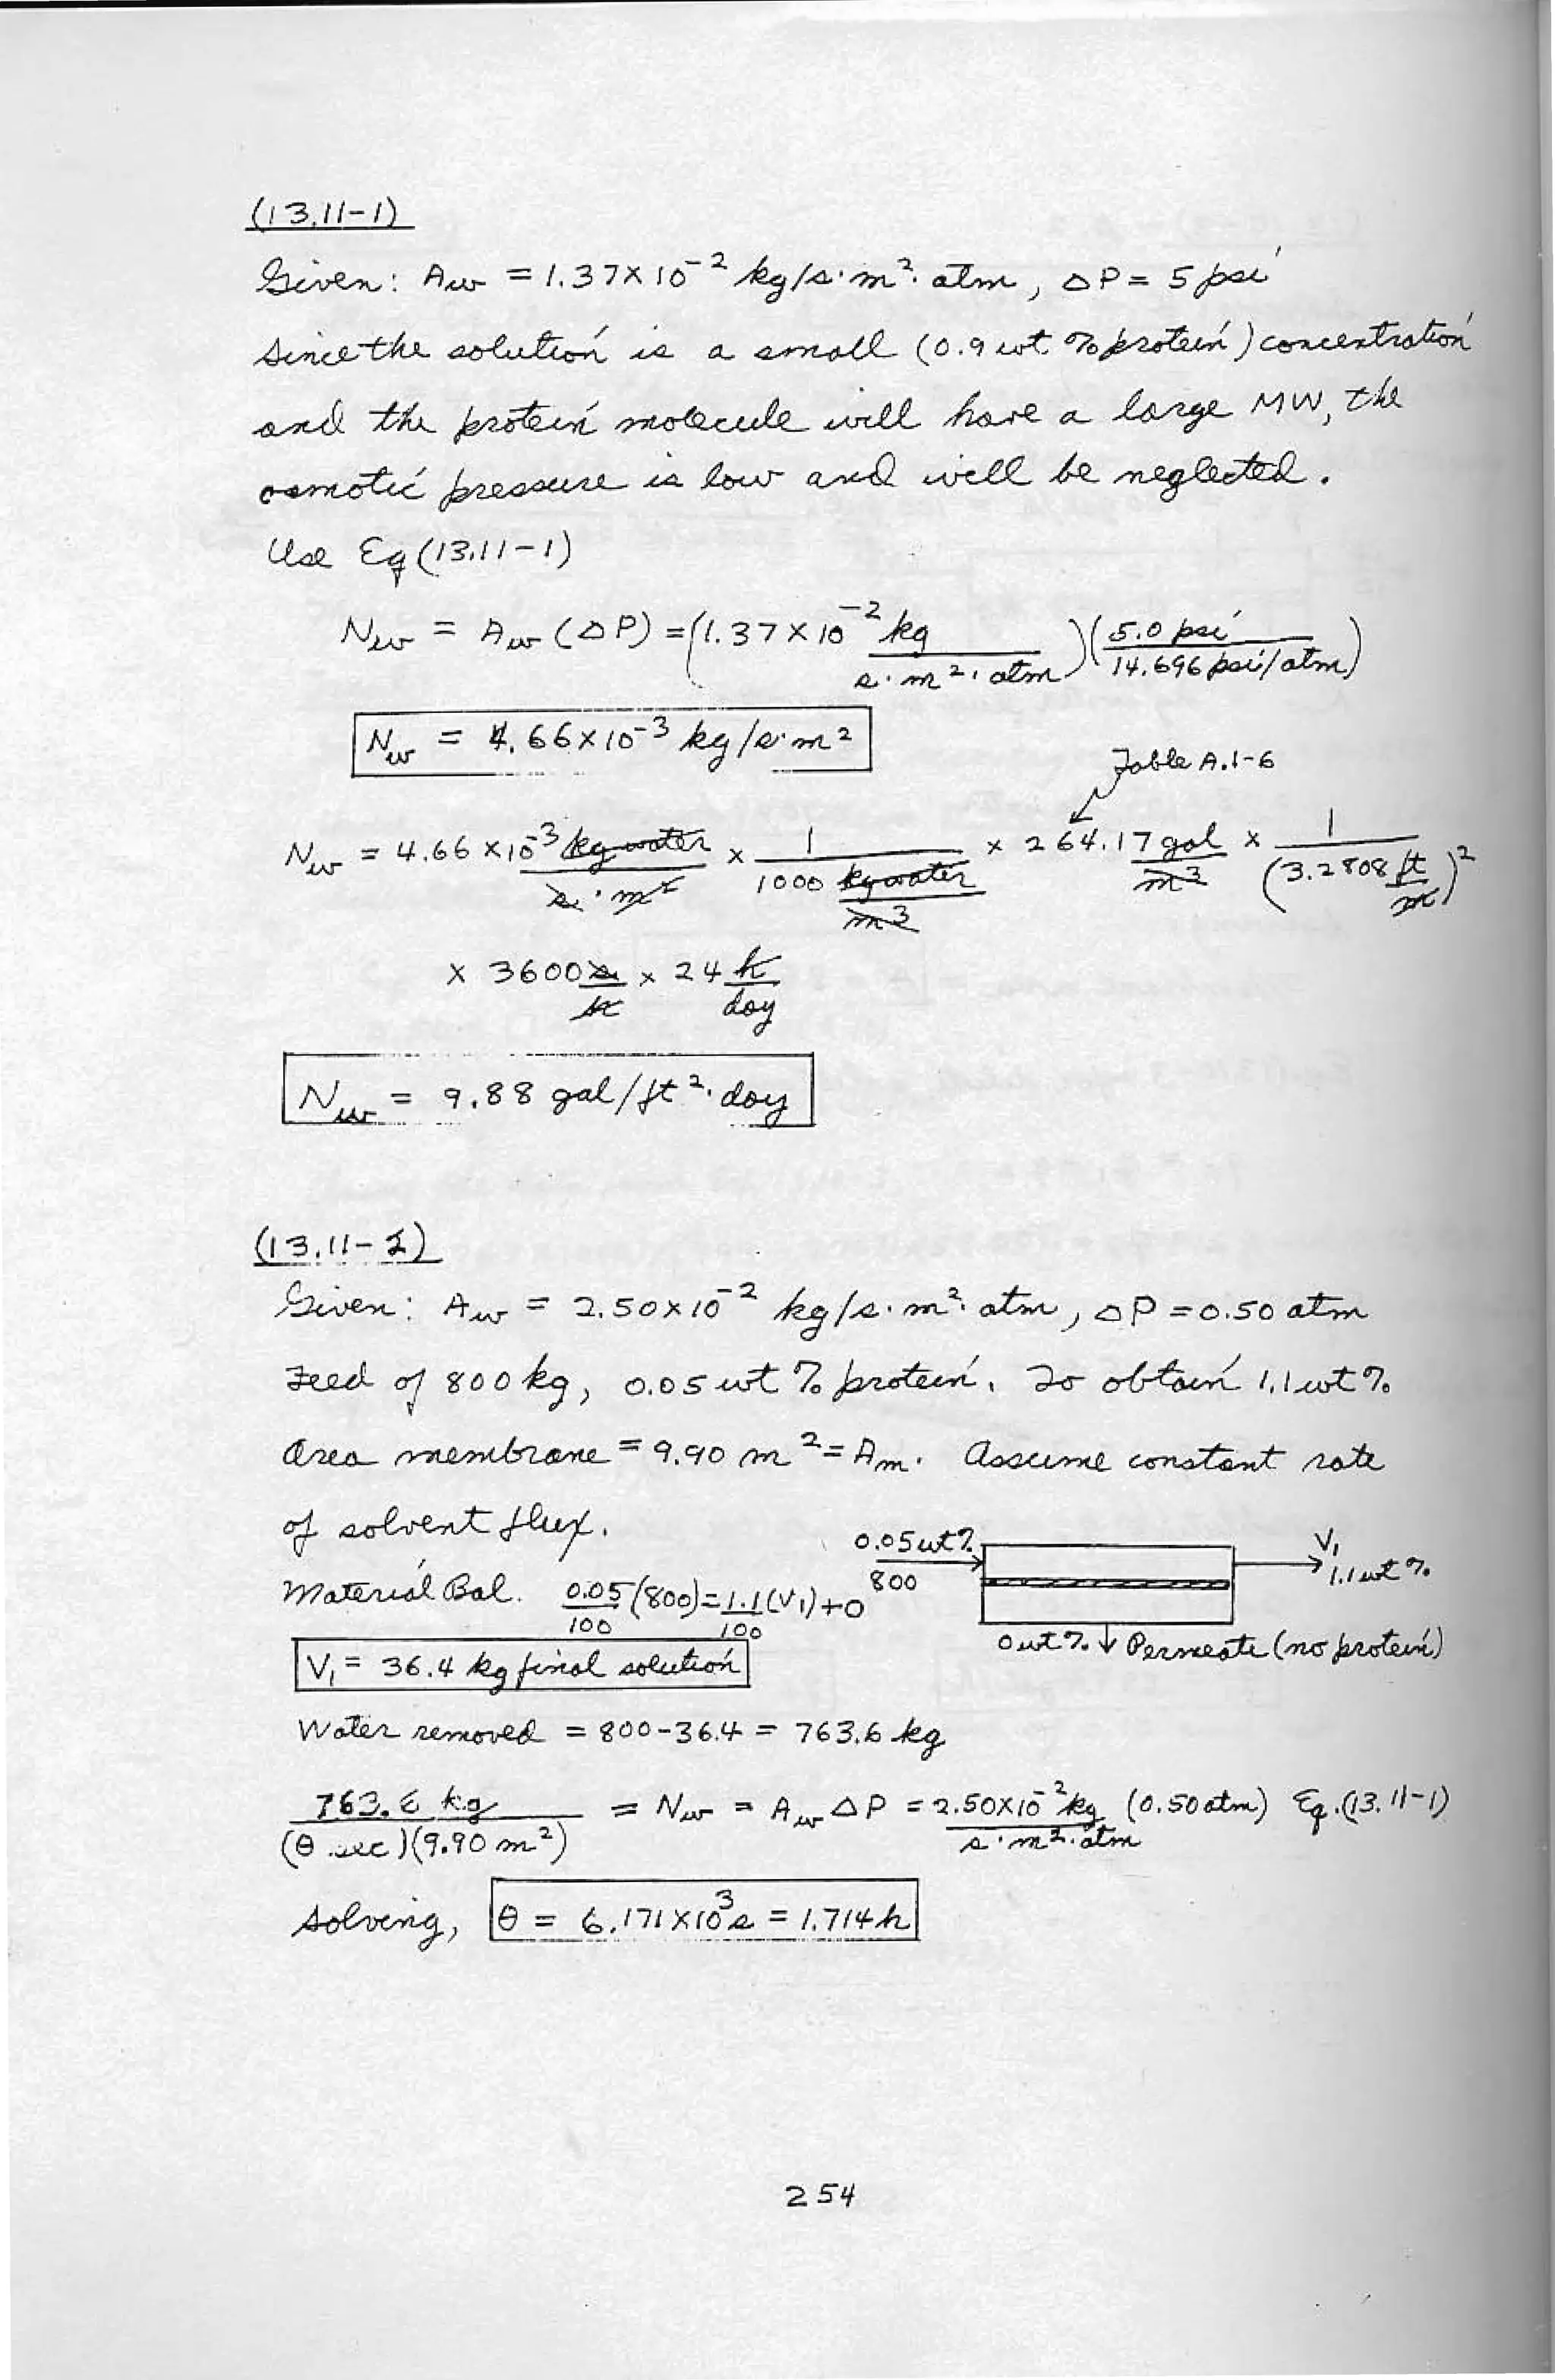 (13.11-1)
Given: Aw = 1.37×10⁻² kg/s·m²·atm, ΔP = 5 psi
Since the solution is a small (0.9 wt % protein) concentration
and the protein molecule will have a large MW, the
osmotic pressure is low and will be neglected.
Use Eq (13.11-1)
Nw = Aw (ΔP) = (1.37×10⁻² kg / s·m²·atm)(5.0 psi / 14.696 psi/atm)
Nw = 4.66×10⁻³ kg/s·m²
Table A.1-6
Nw = 4.66×10⁻³ kg water / s·m² × 1 / 1000 kg water/m³ × 264.17 gal/m³ × 1 / (3.2808 ft/m)²
× 3600 s/h × 24 h/day
Nw = 9.88 gal/ft²·day
(13.11-2)
Given: Aw = 2.50×10⁻² kg/s·m²·atm, ΔP = 0.50 atm
Feed of 800 kg, 0.05 wt % protein. To obtain 1.1 wt %
Area membrane = 9.90 m² = Am. Assume constant rate
of solvent flux.
0.05 wt % 800
V₁ 1.1 wt %
0 wt % Permeate (no protein)
Material Bal. 0.05/100 (800) = 1.1/100 (V₁) + 0
V₁ = 36.4 kg final solution
Water removed = 800 - 36.4 = 763.6 kg
763.6 kg / (θ sec)(9.90 m²) = Nw = Aw ΔP = 2.50×10⁻² kg / s·m²·atm (0.50 atm) Eq. (13.11-1)
Solving, θ = 6.171×10³ s = 1.714 h
254